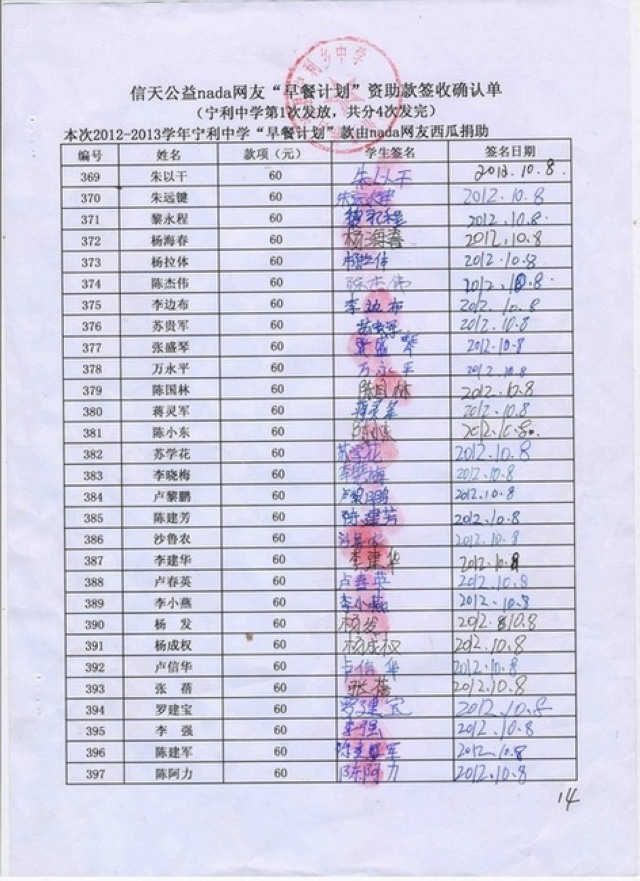 信天公益nada网友“早餐计划”资助款签收确认单
（宁利中学第1次发放，共分4次发完）
本次2012-2013学年宁利中学“早餐计划”款由nada网友西瓜捐助
编号 姓名 款项（元） 学生签名 签名日期
369 朱以干 60 朱以干 2012.10.8.
370 朱远键 60 朱远键 2012.10.8
371 黎永程 60 黎永程 2012.10.8
372 杨海春 60 杨海春 2012.10.8
373 杨拉体 60 杨拉体 2012.10.8
374 陈杰伟 60 陈杰伟 2012.10.8
375 李边布 60 李边布 2012.10.8
376 苏贵军 60 2012.10.8
377 张盛琴 60 张盛琴 2012.10.8
378 万永平 60 万永平 2012.10.8
379 陈国林 60 陈国林 2012.10.8
380 蒋灵军 60 蒋灵军 2012.10.8
381 陈小东 60 陈小东 2012.10.8.
382 苏学花 60 苏学花 2012.10.8
383 李晓梅 60 李晓梅 2012.10.8
384 卢黎鹏 60 卢黎鹏 2012.10.8
385 陈建芳 60 陈建芳 2012.10.8
386 沙鲁农 60 2012.10.8
387 李建华 60 李建华 2012.10.8
388 卢春英 60 卢春英 2012.10.8
389 李小燕 60 李小燕 2012.10.8
390 杨 发 60 杨发 2012.810.8
391 杨成权 60 杨成权 2012.10.8
392 卢信华 60 卢信华 2012.10.8
393 张 蓓 60 张蓓 2012.10.8
394 罗建宝 60 罗建宝 2012.10.8
395 李 强 60 李强 2012.10.8
396 陈建军 60 陈建军 2012.10.8
397 陈阿力 60 陈阿力 2012.10.8
14